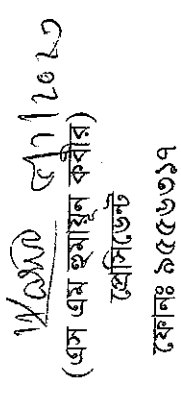 (এস এম হুমায়ুন কবীর)
প্রেসিডেন্ট
ফোনঃ ৯৫৫৬৩১৭